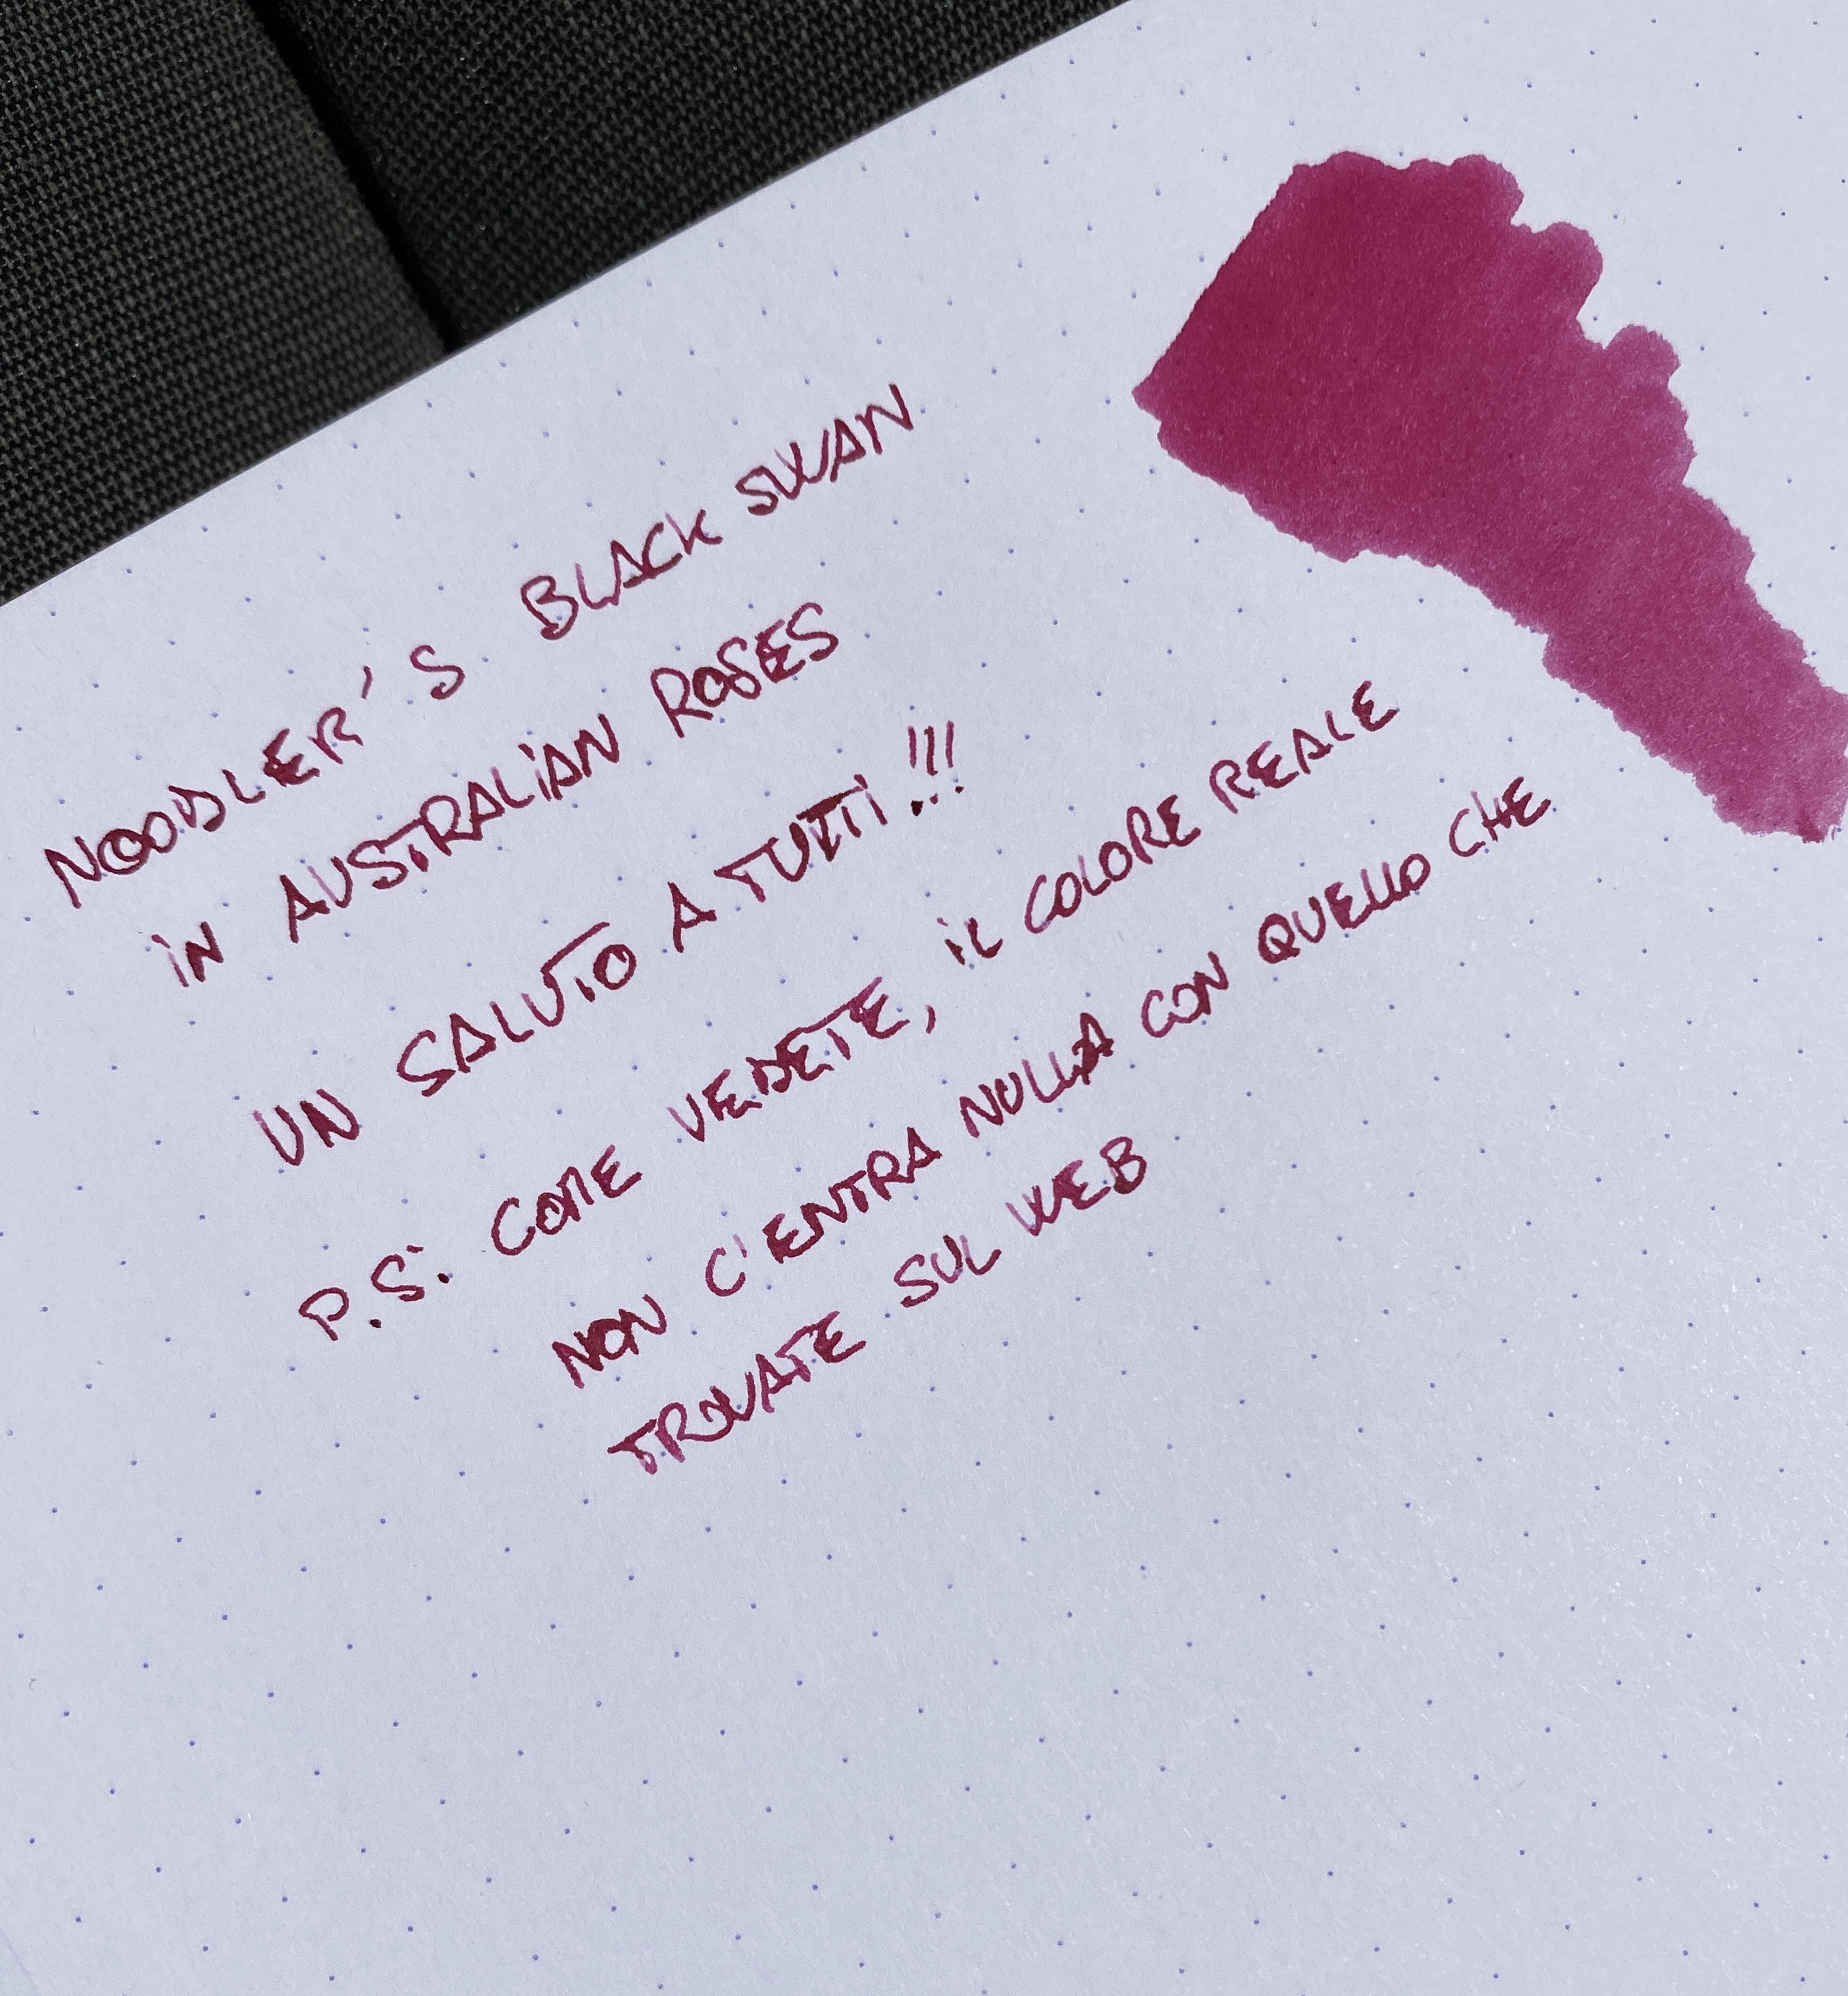 NOODLER'S BLACK SWAN
IN AUSTRALIAN ROSES
UN SALUTO A TUTTI!!!
P.S: COME VEDETE, IL COLORE REALE
NON C'ENTRA NULLA CON QUELLO CHE
TROVATE SUL WEB